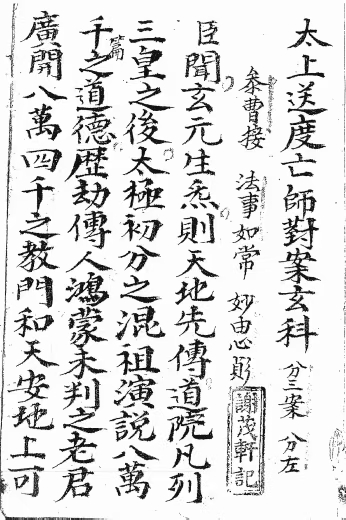 太上送度亡師對案玄科 分三案 分左
叅曹接 法事如常 妙由心 謝茂軒記
臣聞玄元生炁則天地先傳道院凡列
三皇之後太極初分之混祖演說八萬
千篇之道德歴劫傳人鴻蒙未判之老君
廣開八萬四千之教門和天安地上可